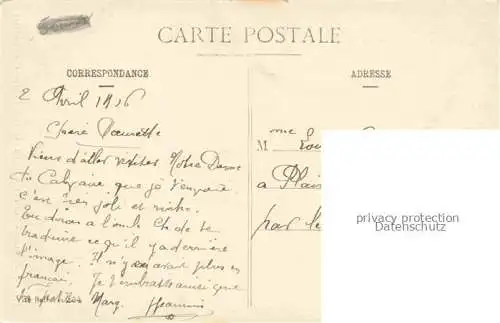 CARTE POSTALE
CORRESPONDANCE
ADRESSE
2 Avril 1916
Chère Nenette
Viens d'aller visiter Notre Dame
du Calvaire que je t'envoie
c'est très joli et riche.
Tu diras à l'oncle Ch de te
traduire ce qu'il y a derrière
l'image. Il n'y en avait plus en
français. Je t'embrasse ainsi que
Marg.
M
à Plais
par le
privacy protection
Datenschutz